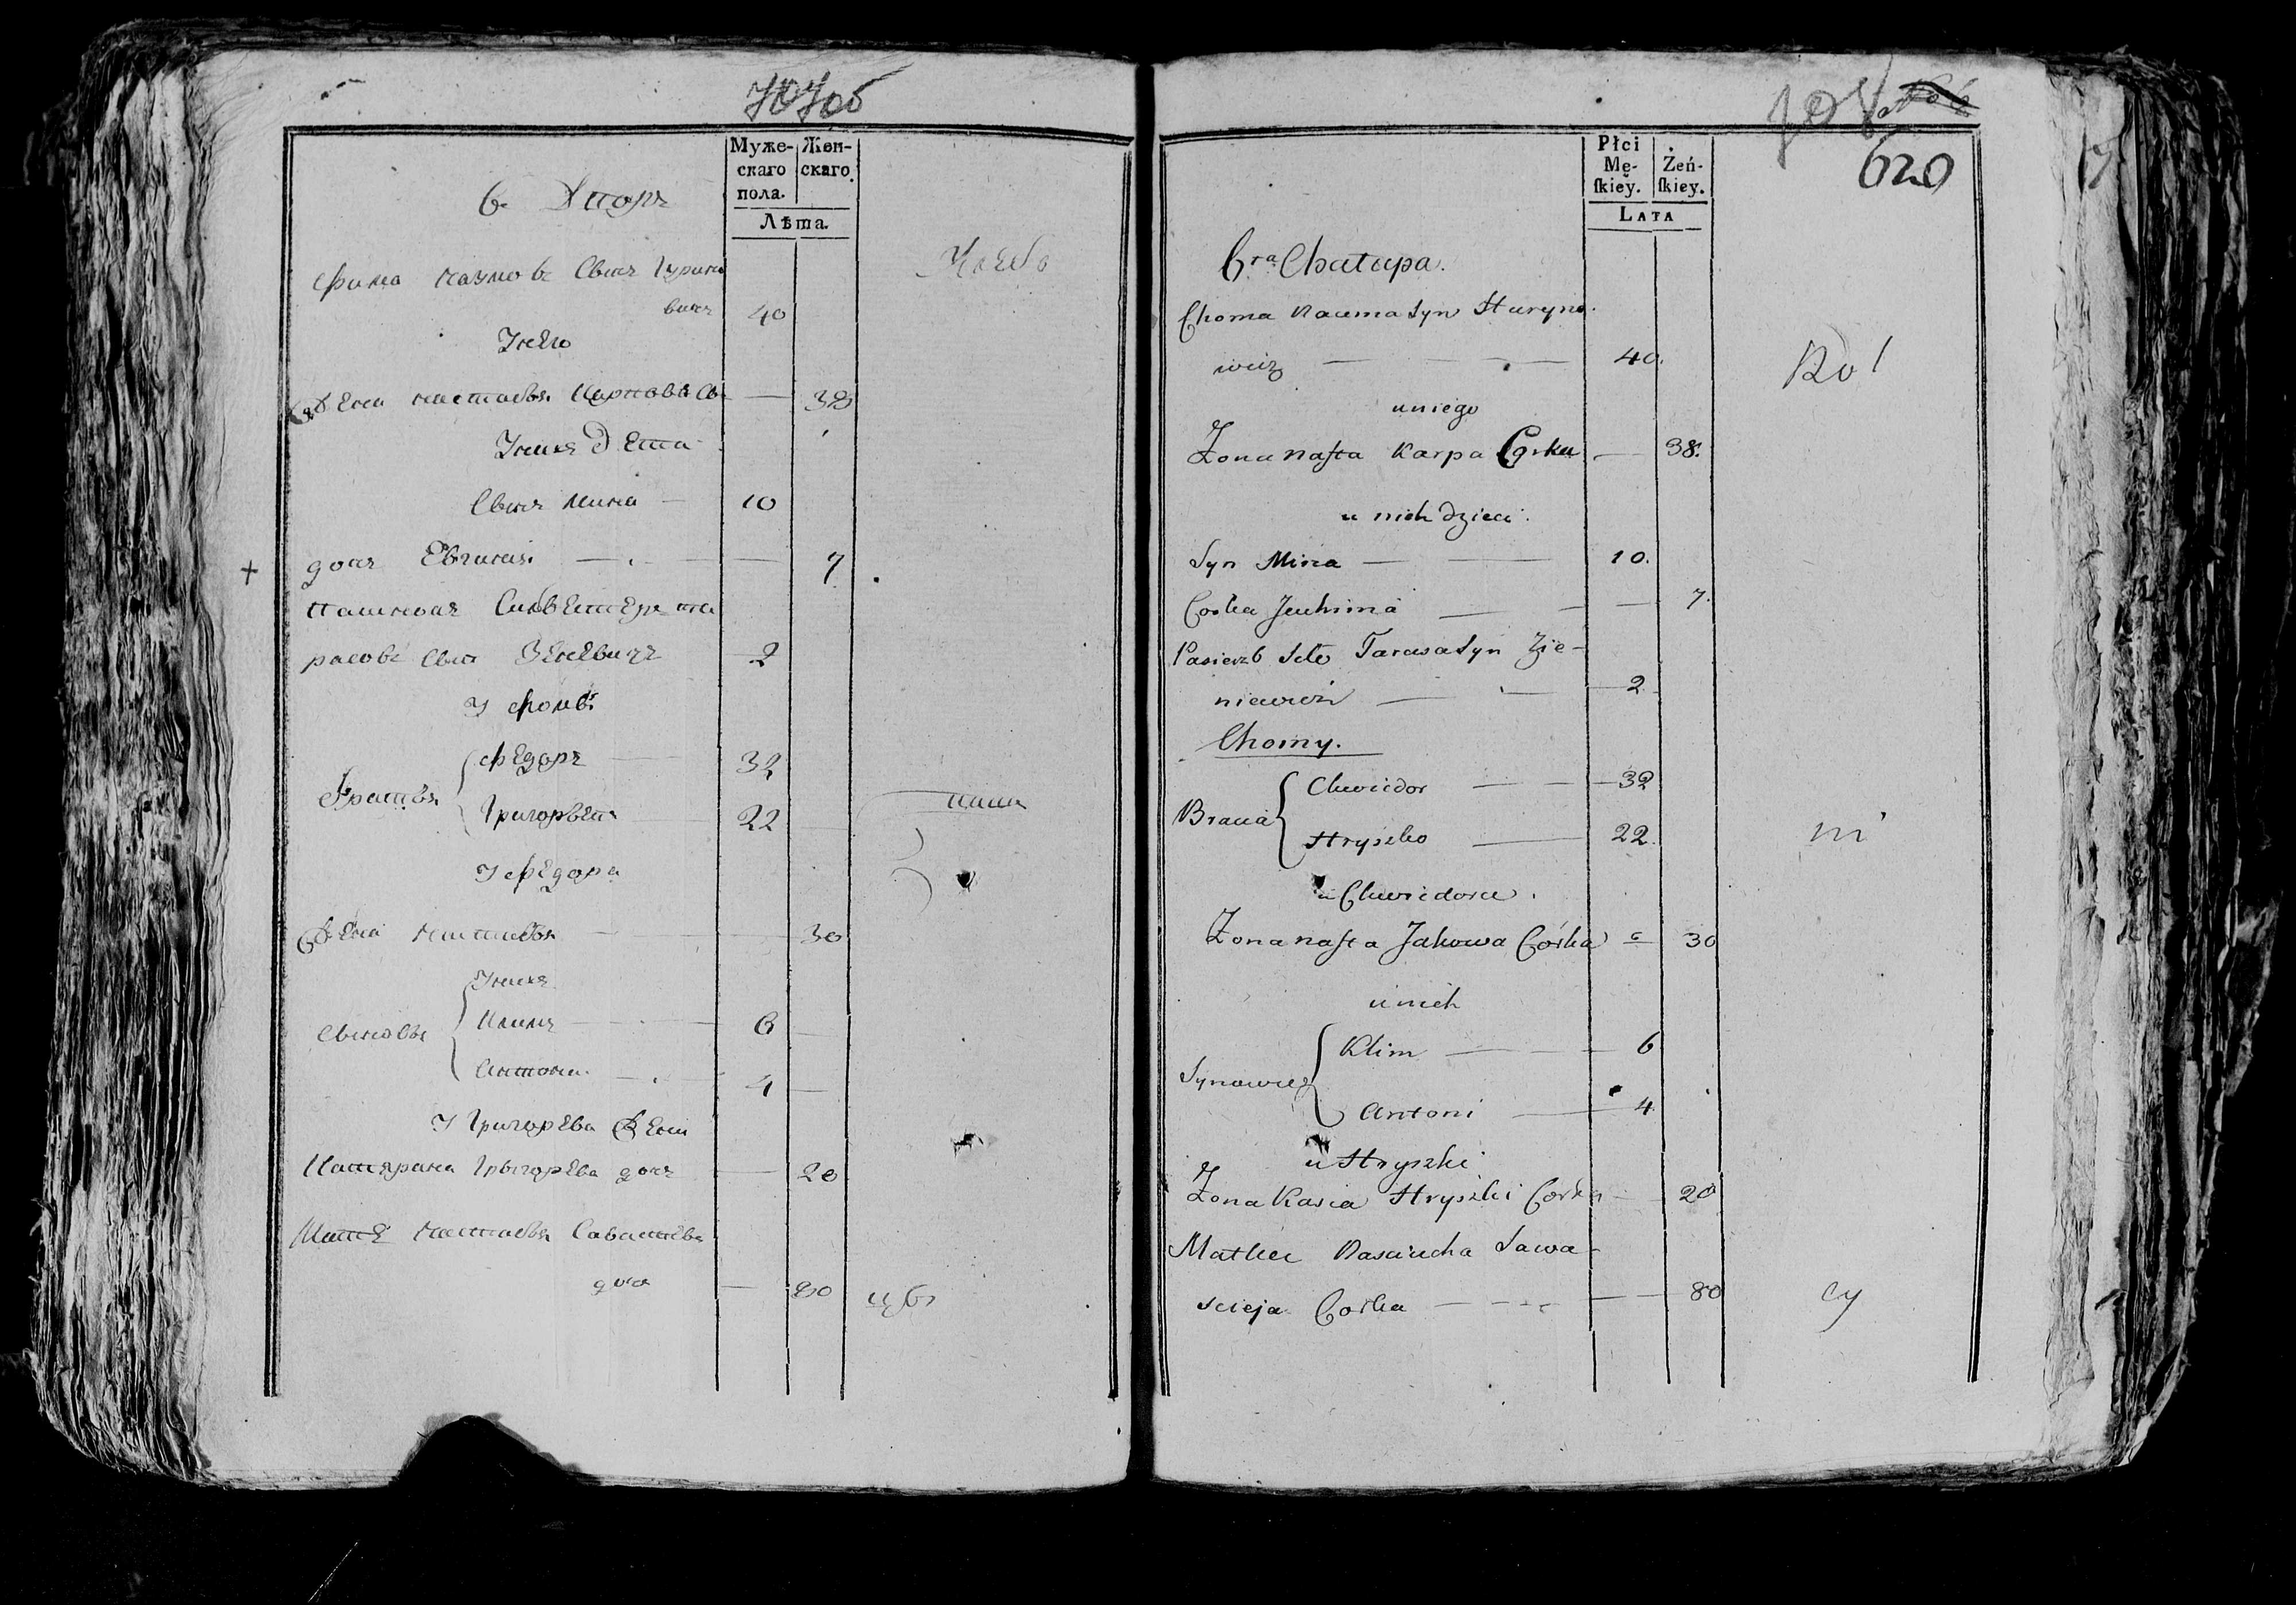 Муже-
скаго
пола.
Жен-
скаго.
Лѣта.
6. Дворъ
Фома Наумовъ Сынъ Гурино
вичъ 40
У него
Жена Настасья Карпова 38
У нихъ дети
Сынъ Мина — 10
+ дочь Евгинія — 7
пашинокъ Сильвестеръ та
расовъ сынъ Зеневичъ 2
У Фомы
Братья
Федоръ — 32
Григорей — 22
У Федора
Жена Настасья — 30
У нихъ
Сыновья
Климъ — 6
Антонъ — 4
У Григорева Жена
Катярина Грыгорева дочь — 20
Матъ Настасья Саватѣева
дочь — 80
620
Płci
Mę-
ſkiey.
Żeń-
ſkiey.
Lata
6ta Chatupa.
Choma Nauma Syn Huryno-
wicz — 40.
u niego
Żona Naſta Karpa Corka — 38.
u nich dzieci.
Syn Mina — 10.
Corka Jeuhinia — 7.
Pasierzb Tarasa Syn Zie-
niewicz — 2
Chomy.
Bracia
Chwiedor — 32
Hryszko — 22.
u Chwiedora.
Żona Naſta Jakowa Córka — 30
u nich
Synowie
Klim — 6
Antoni — 4.
u Hryszki
Żona Kasia Hryszki Corka — 20
Matka Nasciucha Sawa-
scieja Corka — 80